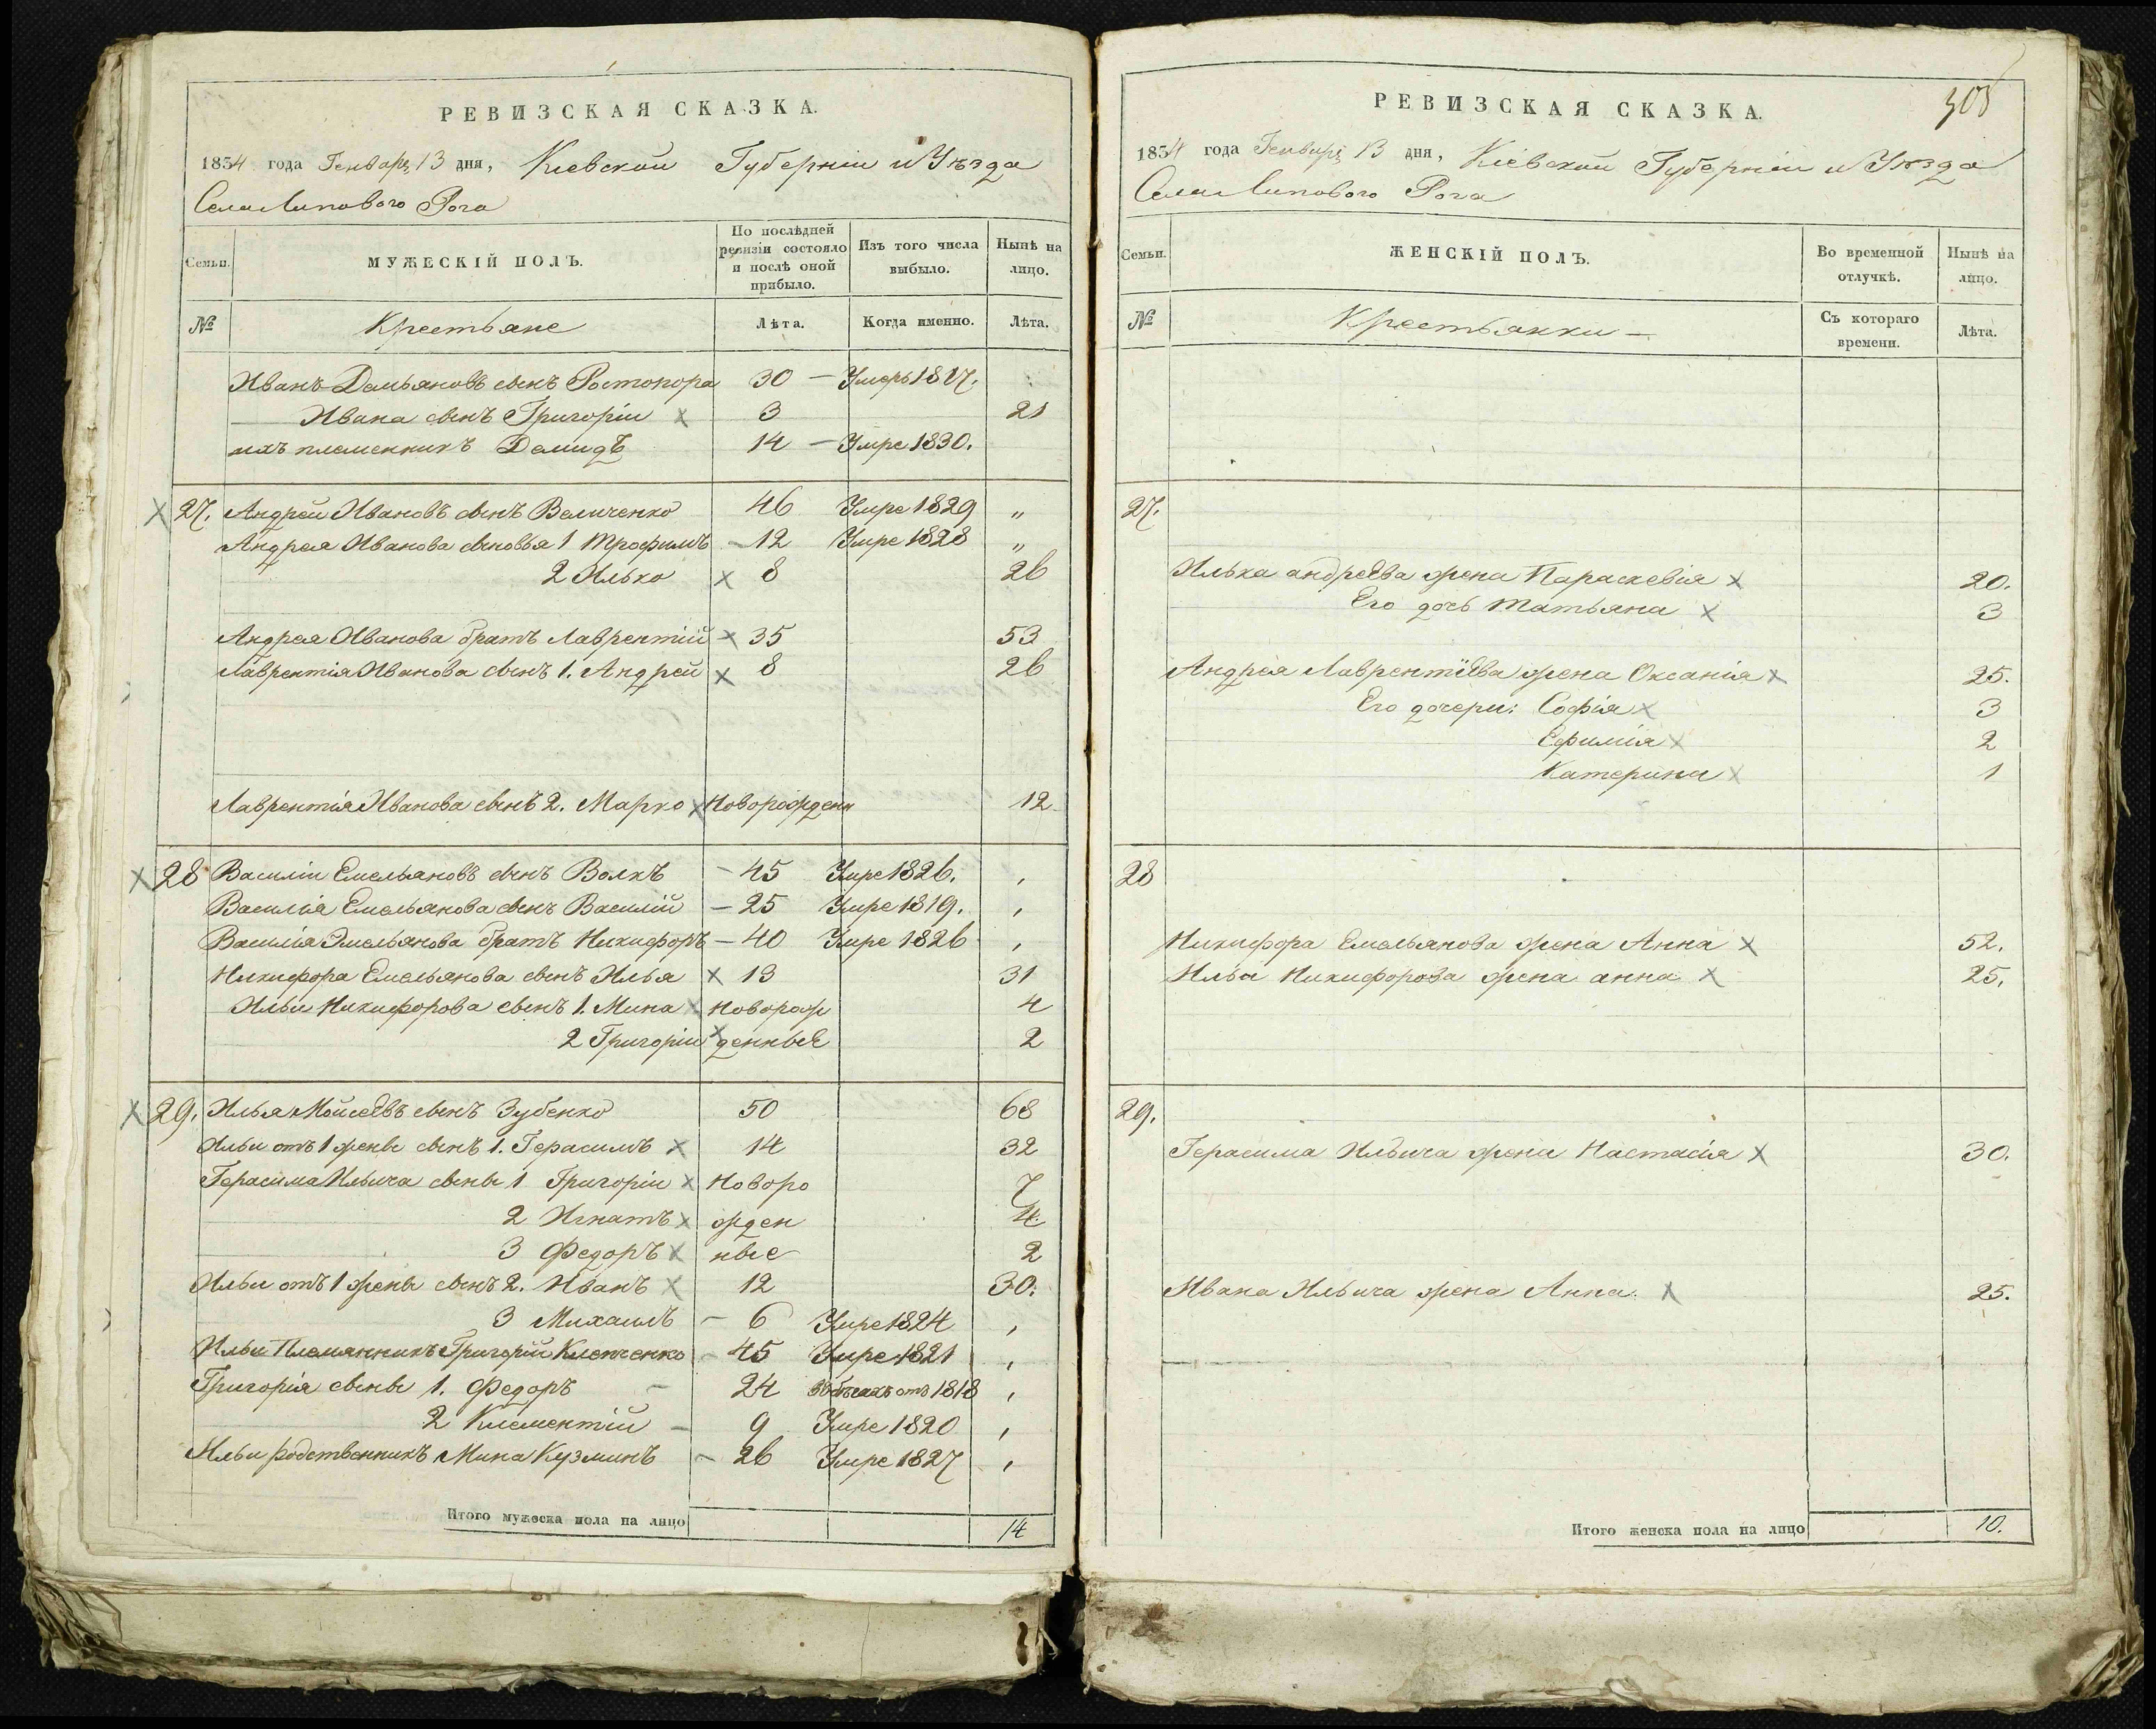 РЕВИЗСКАЯ СКАЗКА.
1834 года Генваря 13 дня, Кіевской Губерніи и Уѣзда
Села Липового Рога
Семьи. МУЖЕСКІЙ ПОЛЪ. По послѣдней ревизіи состояло и послѣ оной прибыло. Изъ того числа выбыло. Нынѣ на лицо.
№ Крестьяне Лѣта. Когда именно. Лѣта.
Иванъ Демьяновъ сынъ Ростопора 30 — Умеръ 1817.
Ивана сынъ Григоріи х 3 21
ихъ племенникъ Демидъ 14 — Умре 1830.
х 27. Андрей Ивановъ сынъ Величенко 46 Умре 1829 „
Андрея Иванова сыновья 1 Трофимъ – 12 Умре 1828 „
2 Илько х 8 26
Андрея Иванова братъ Лаврентій х 35 53
Лаврентія Иванова сынъ 1. Андрей х 8 26
Лаврентія Иванова сынъ 2. Марко х Новорожденн 12
х 28 Василіи Емельяновъ сынъ Волкъ – 45 Умре 1826. ,
Василія Емельянова сынъ Василій – 25 Умре 1819. ,
Василія Эмельянова братъ Никифоръ – 40 Умре 1826 ,
Никифора Емельянова сынъ Илья х 13 31
Ильи Никифорова сынъ 1. Мина х Новорож 4
2 Григоріи х денныѣ 2
х 29. Илья Мойсеѣвъ сынъ Зубенко 50 68
Ильи отъ 1 жены сынъ 1. Герасимъ х 14 32
Герасима Ильича сыны 1 Григоріи х Новоро 7
2 Игнатъ х жден 4.
3 Федоръ х ные 2
Ильи отъ 1 жены сынъ 2. Иванъ х 12 30.
3 Михаилъ – 6 Умре 1824 ,
Ильи Племянникъ Григорій Клепченко – 45 Умре 1821 ,
Григорія сыны 1. Федоръ – 24 1818 ,
2 Клементій – 9 Умре 1820 ,
Ильи родственникъ Мина Кузминъ – 26 Умре 1827 ,
Итого мужеска пола на лицо 14
РЕВИЗСКАЯ СКАЗКА. 305
1834 года Генваря 13 дня, Кіевской Губерніи и Уѣзда
Села Липового Рога
Семьи. ЖЕНСКІЙ ПОЛЪ. Во временной отлучкѣ. Нынѣ на лицо.
№ Крестьянки — Съ котораго времени. Лѣта.
27.
Илька андреѣва жена Параскевія х 20.
Его дочь татьяна х 3
Андрея Лаврентіѣва жена Оксанія х 25.
Его дочери: Софія х 3
Ефимія х 2
Катерина х 1
28
Никифора Емельянова жена Анна х 52.
Ильи Никифорова жена анна х 25.
29.
Герасима Ильича жена Настасія х 30.
Ивана Ильича жена Анна. х 25.
Итого женска пола на лицо 10.